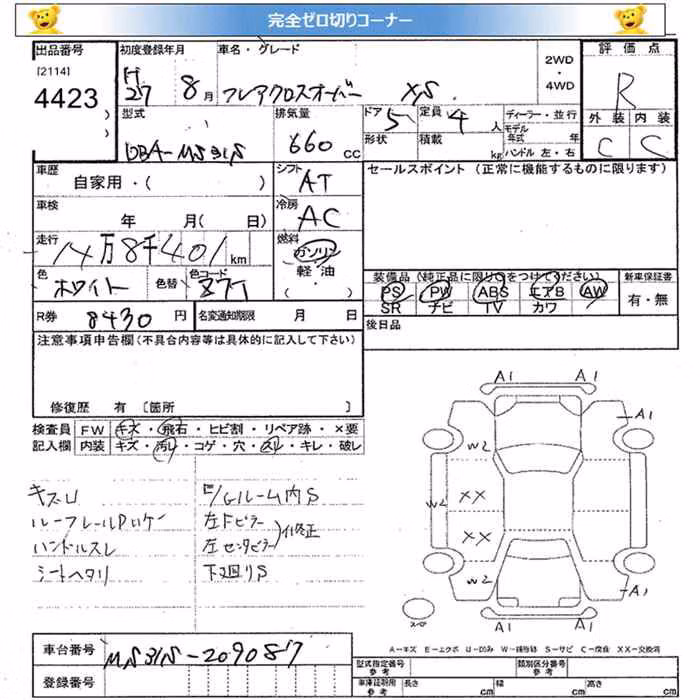 完全ゼロ切りコーナー
出品番号 初度登録年月 車名・グレード 評価点
[2114] 4423
H27 8月 フレアクロスオーバー XS 2WD・4WD R
型式 DBA-MS31S 排気量 660 CC ドア 5 定員 4 人 ディーラー・並行
形状 積載 kg モデル年式 年 ハンドル 左・右
外装 内装
C C
車歴 自家用・( ) シフト AT
セールスポイント (正常に機能するものに限ります)
車検 年 月( 日) 冷房 AC
走行 14万8千401km 燃料 ガソリン・軽油・( )
色 ホワイト 色替 色コード Z7T
装備品(純正品に限り○をつけてください) 新車保証書
PS PW ABS エアB AW 有・無
SR ナビ TV カワ
R券 8430円 名変通知期限 月 日
後日品
注意事項申告欄(不具合内容等は具体的に記入して下さい)
修復歴 有 [箇所 ]
検査員記入欄 FW キズ・飛石・ヒビ割・リペア跡・×要
内装 キズ・汚れ・コゲ・穴・スレ・キレ・破レ
A1 A1
A1
W2
W2
XX
XX
W2
A1
A1 A1
スペア
キズU
ルーフレールPハゲ
ハンドルスレ
シートヘタリ
E/Gルーム内S
左Fピラー
左センタピラー 修正
下廻りS
A-キズ E-エクボ U-凹み W-補修跡 S-サビ C-腐食 XX-交換済
車台番号 MS31S-209087
登録番号
型式指定番号 参考 類別区分番号 参考
車庫証明用 参考 長さ cm 幅 cm 高さ cm